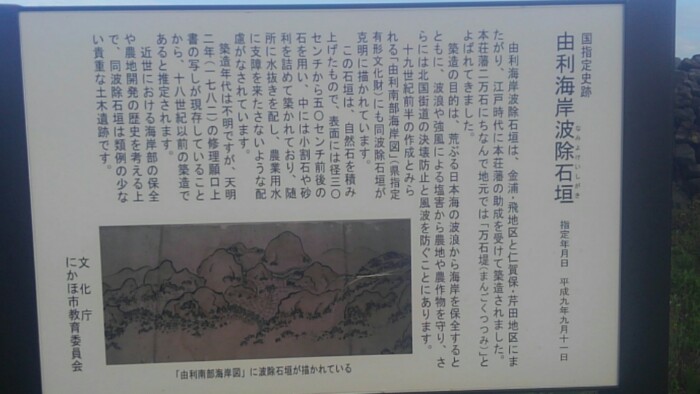 国指定史跡
由利海岸波除石垣
なみよけいしがき
指定年月日　平成九年九月十一日
由利海岸波除石垣は、金浦・飛地区と仁賀保・芹田地区にま
たがり、江戸時代に本荘藩の助成を受けて築造されました。
本荘藩二万石にちなんで地元では「万石堤(まんごくつつみ)」と
よばれてきました。
築造の目的は、荒ぶる日本海の波浪から海岸を保全すると
ともに、波浪や強風による塩害から農地や農作物を守り、さ
らには北国街道の決壊防止と風波を防ぐことにあります。
十九世紀前半の作成とみら
れる「由利南部海岸図」(県指定
有形文化財)にも同波除石垣が
克明に描かれています。
この石垣は、自然石を積み
上げたもので、表面には径三〇
センチから五〇センチ前後の
石を用い、中には小割石や砂
利を詰めて築かれており、随
所に水抜きを配し、農業用水
に支障を来たさないような配
慮がなされています。
築造年代は不明ですが、天明
二年(一七八二)の修理願口上
書の写しが現存していること
から、十八世紀以前の築造で
あると推定されます。
近世における海岸部の保全
や農地開発の歴史を考える上
で、同波除石垣は類例の少な
い貴重な土木遺跡です。
文化庁
にかほ市教育委員会
「由利南部海岸図」に波除石垣が描かれている